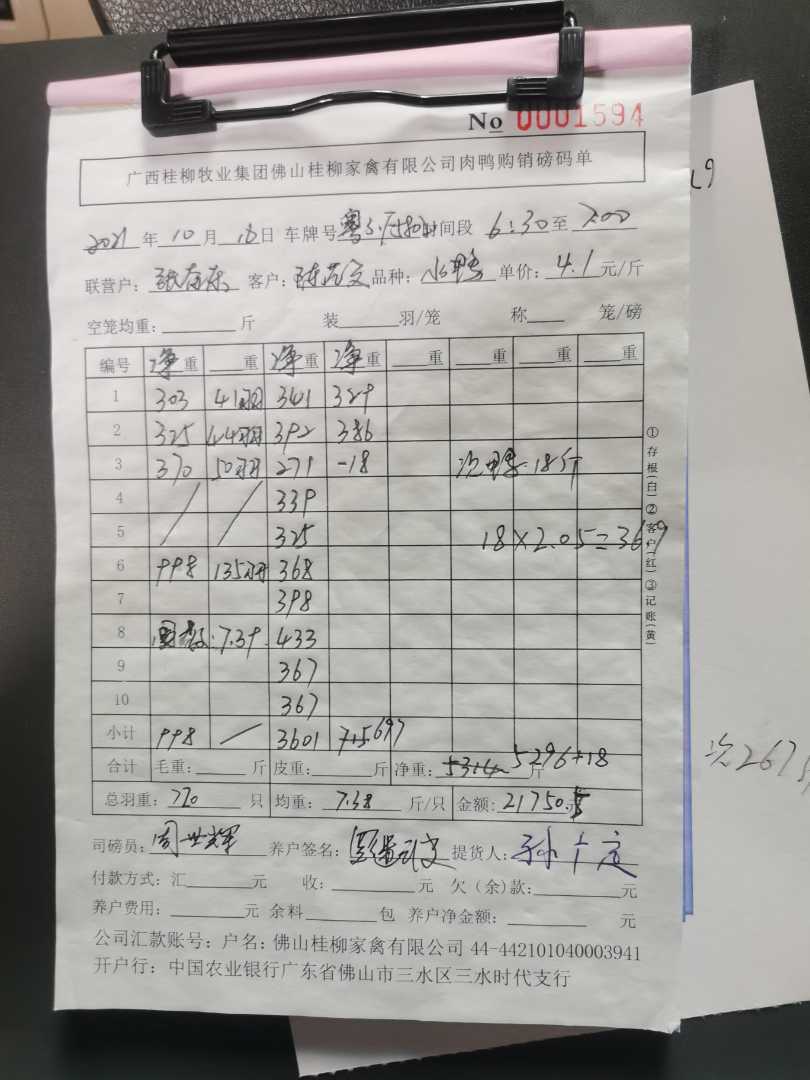 No 0001594
广西桂柳牧业集团佛山桂柳家禽有限公司肉鸭购销磅码单
2021年10月16日 车牌号 时间段 6:30至7:00
联营户: 客户: 品种:水鸭 单价:4.1元/斤
空笼均重: 斤 装 羽/笼 称 笼/磅
编号 净重 重 净重 净重 重 重 重 重
1 303 41羽 341 329
2 325 44羽 392 386
3 370 50羽 271 -18 次鸭 18斤
4 / / 339
5 325 18×2.05=36.9
6 998 135羽 368
7 398
8 7.39 433
9 367
10 367
小计 998 / 3601 697
合计 毛重: 斤 皮重: 斤 净重: 5296+18 斤
总羽重:720只 均重:7.38斤/只 金额:21750.5
司磅员:周世辉 养户签名: 提货人:
付款方式:汇 元 收: 元 欠(余)款: 元
养户费用: 元 余料 包 养户净金额: 元
公司汇款账号:户名:佛山桂柳家禽有限公司 44-442101040003941
开户行:中国农业银行广东省佛山市三水区三水时代支行
①存根(白)②客户(红)③记账(黄)
次267